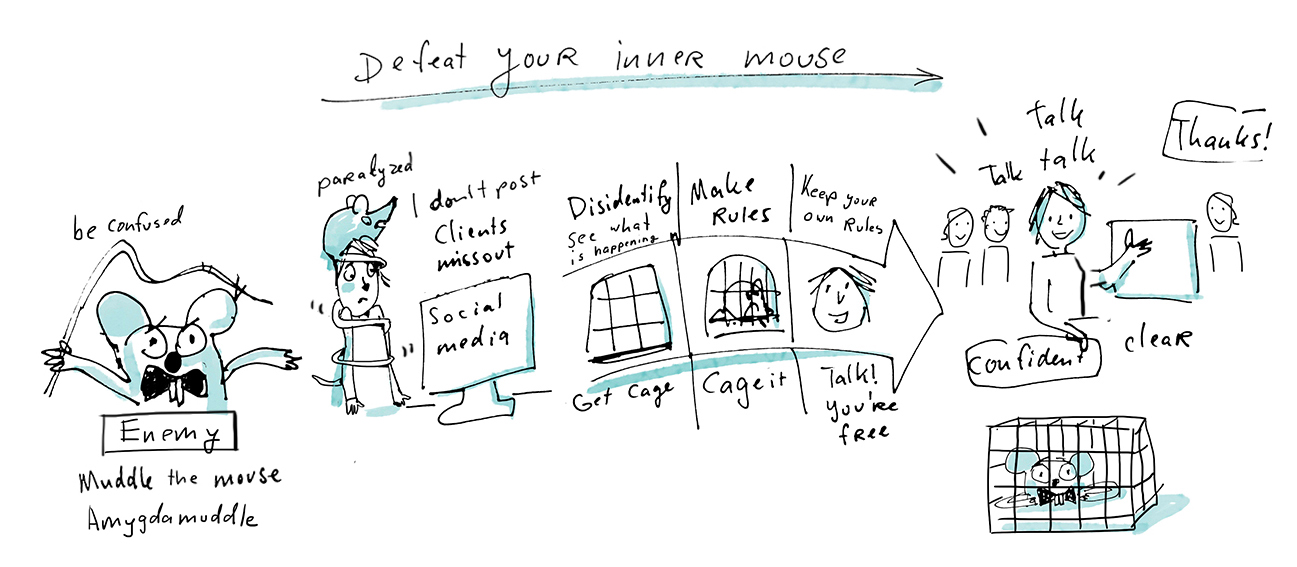 Defeat your inner mouse
be confused
Enemy
Muddle the mouse
Amygdamuddle
paralyzed
I don't post
Clients
missout
Social
media
Disidentify
see what
is happening
Get Cage
Make
Rules
Cage it
Keep your
own Rules
Talk!
you're
free
Talk
talk
Talk
Thanks!
confident
clear